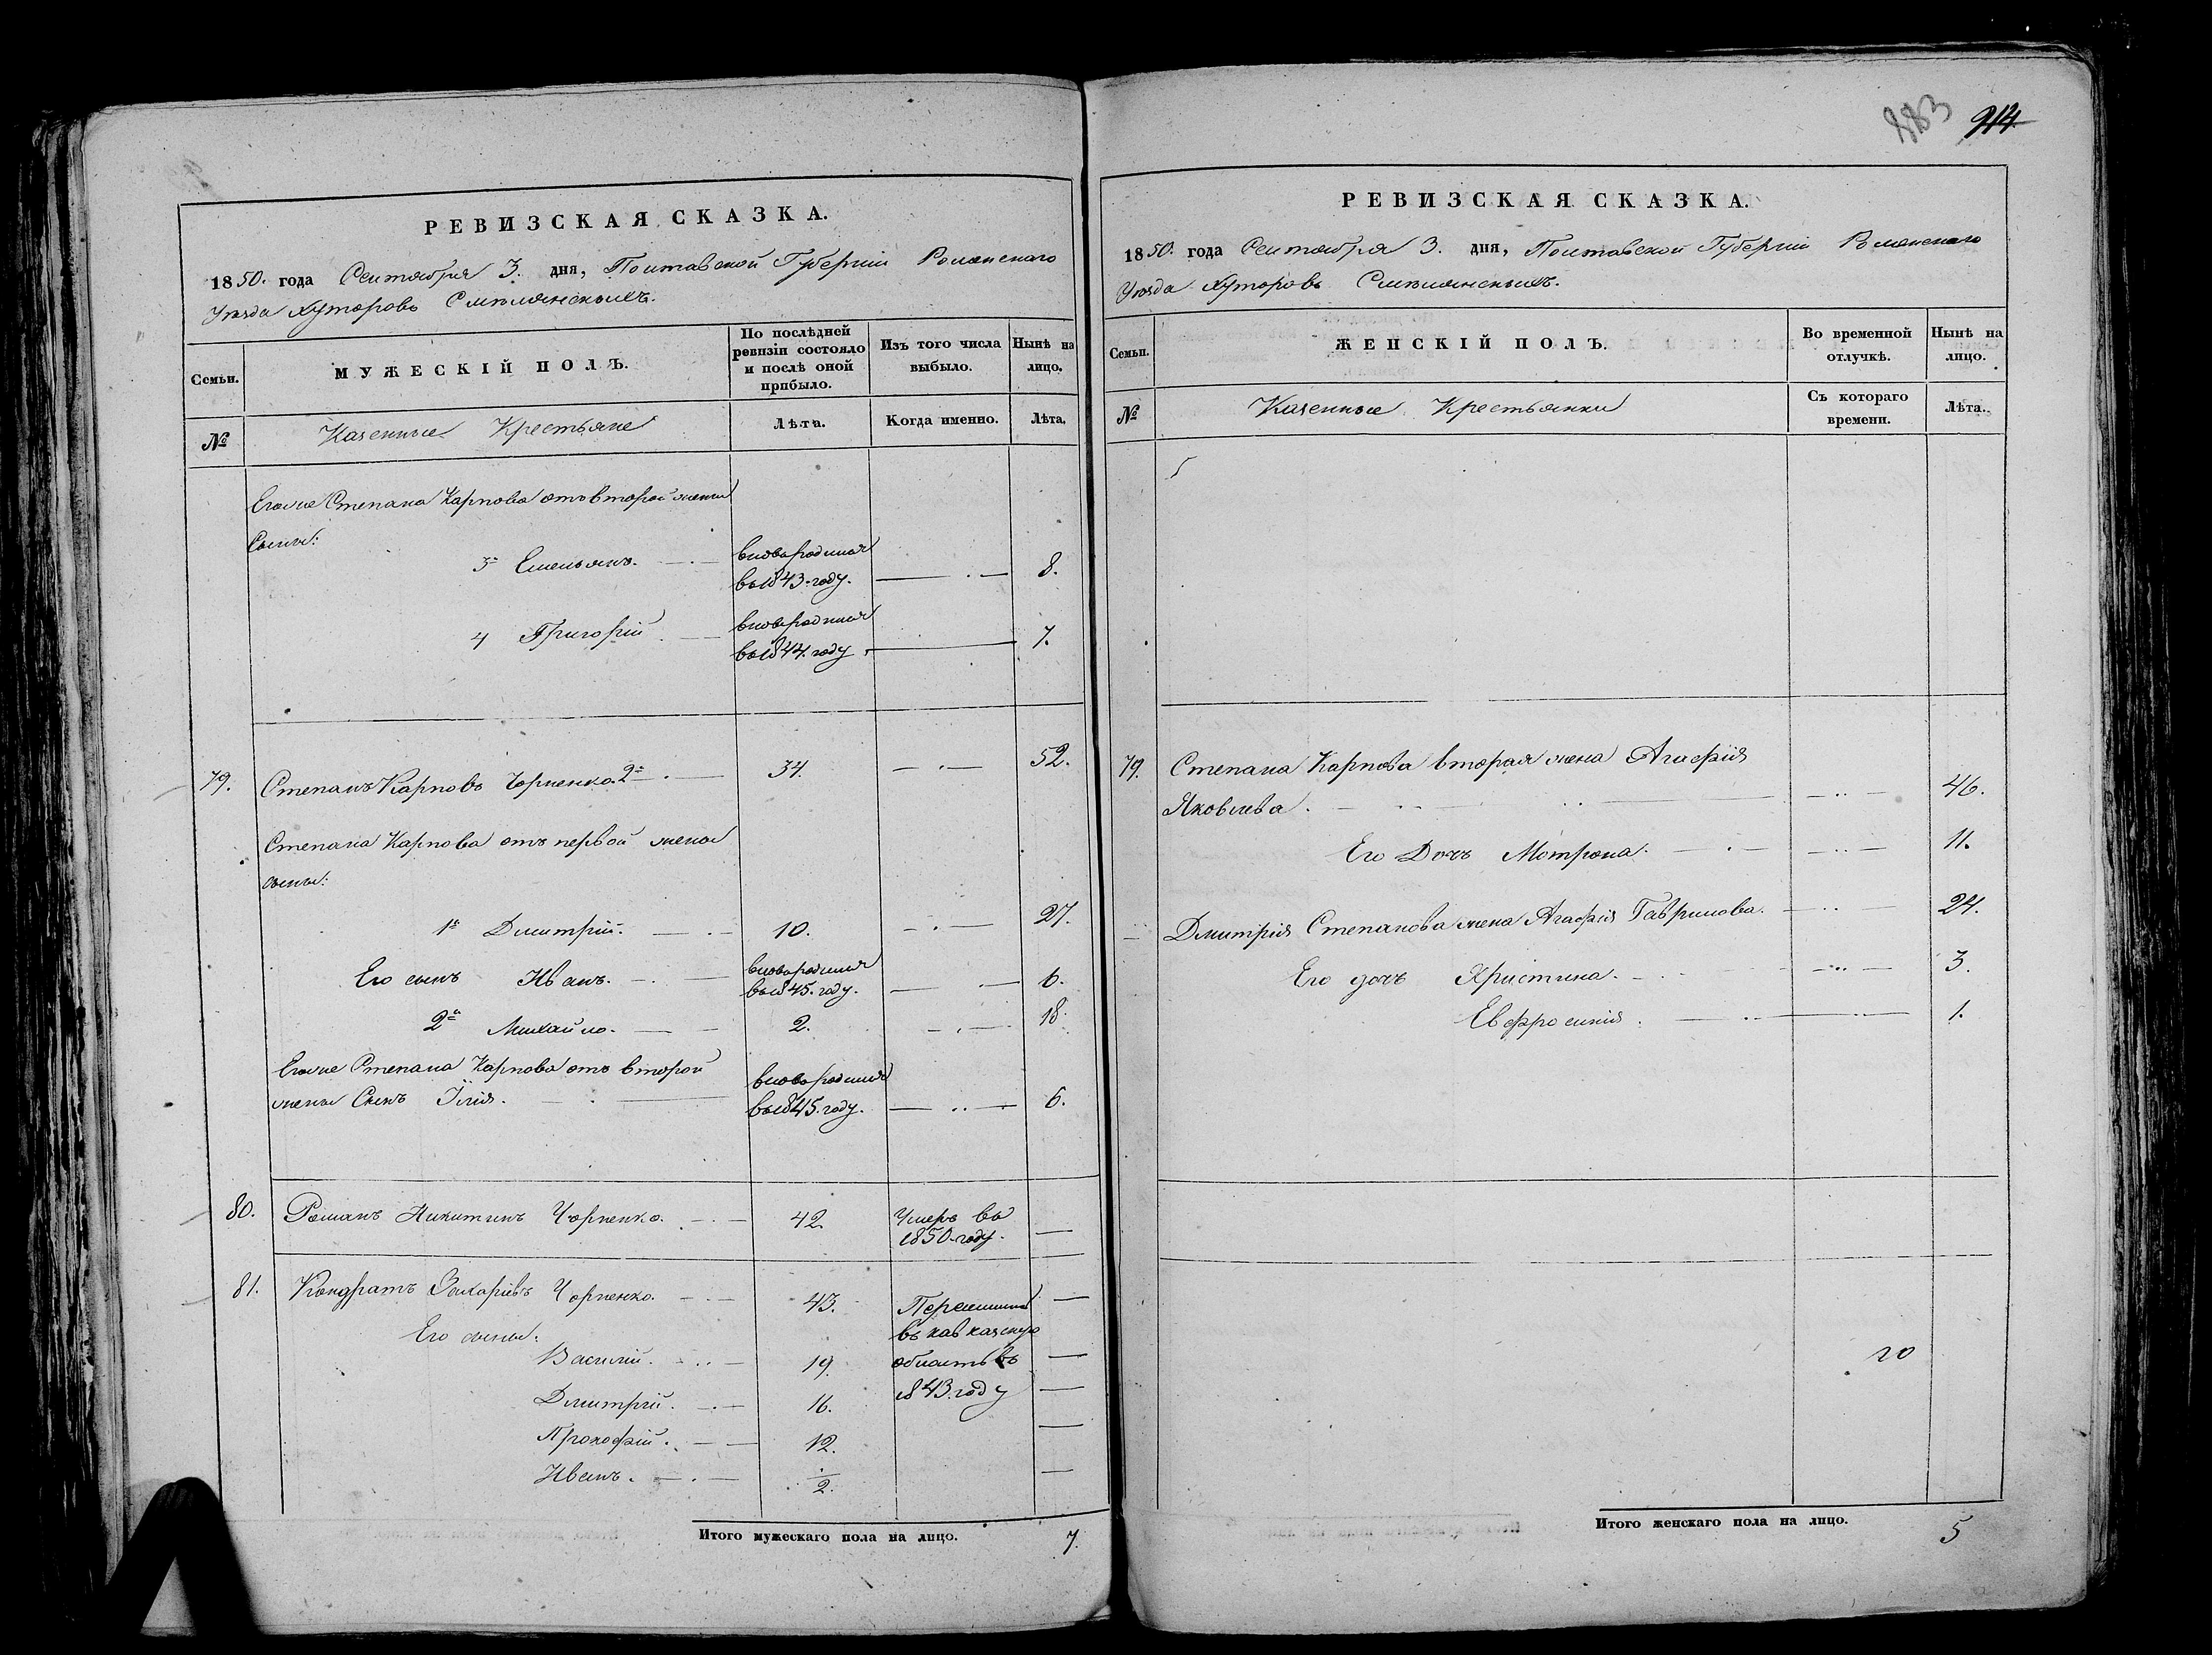 РЕВИЗСКАЯ СКАЗКА.
1850. года Сентября 3. дня, Полтавской Губерніи Роменскаго
Уѣзда Хуторовъ Смѣлянскихъ.
Семьи.
МУЖЕСКІЙ ПОЛЪ.
По послѣдней
ревизіи состояло
и послѣ оной
прибыло.
Изъ того числа
выбыло.
Нынѣ на
лицо.
№
Казенные Крестьяне
Лѣта.
Когда именно.
Лѣта.
Его же Степана Карпова отъ второй жены
Сыны:
3й Емельянъ. вновьродился
въ 1843. году. 8.
4 Григорій вновьродился
въ 1844. году. 7.
79. Степанъ Карповъ Чорненко. 2й 34. 52.
Степана Карпова отъ первой жены
сыны:
1й Дмитрій. 10. 27.
Его сынъ Иванъ. вновьродился
въ 1845. году. 6.
2й Михайло. 2. 18.
Его же Степана Карпова отъ второй
жены Сынъ Ілія. вновьродился
въ 1845. году. 6.
80. Романъ Никитинъ Чорненко. 42. Умеръ въ
1850. году.
81. Кондратъ Захаріевъ Чорненко. 43. Переселился
Его сыны: въ кавказскую
Василій. 19. область въ
Дмитрій. 16. 1843. году
Прокофій. 12.
Иванъ. 1/2.
Итого мужескаго пола на лицо. 7.
914
РЕВИЗСКАЯ СКАЗКА.
1850. года Сентября 3. дня, Полтавской Губерніи Роменскаго
Уѣзда Хуторовъ Смѣлянскихъ.
Семьи.
ЖЕНСКІЙ ПОЛЪ.
Во временной
отлучкѣ.
Нынѣ на
лицо.
№
Казенные Крестьянки
Съ котораго
времени.
Лѣта.
79. Степана Карпова вторая жена Агафія
Яковлева. 46.
Его Дочь Мотрона. 11.
Дмитрія Степанова жена Агафія Гаврилова. 24.
Его дочь Христина. 3.
Евфросинія. 1.
Итого женскаго пола на лицо. 5